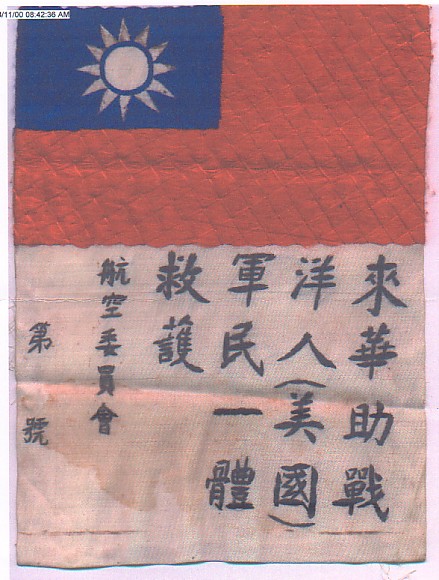 /11/00 08:42:36 AM
來華助戰
洋人(美國)
軍民一體
救護
航空委員會
第 號